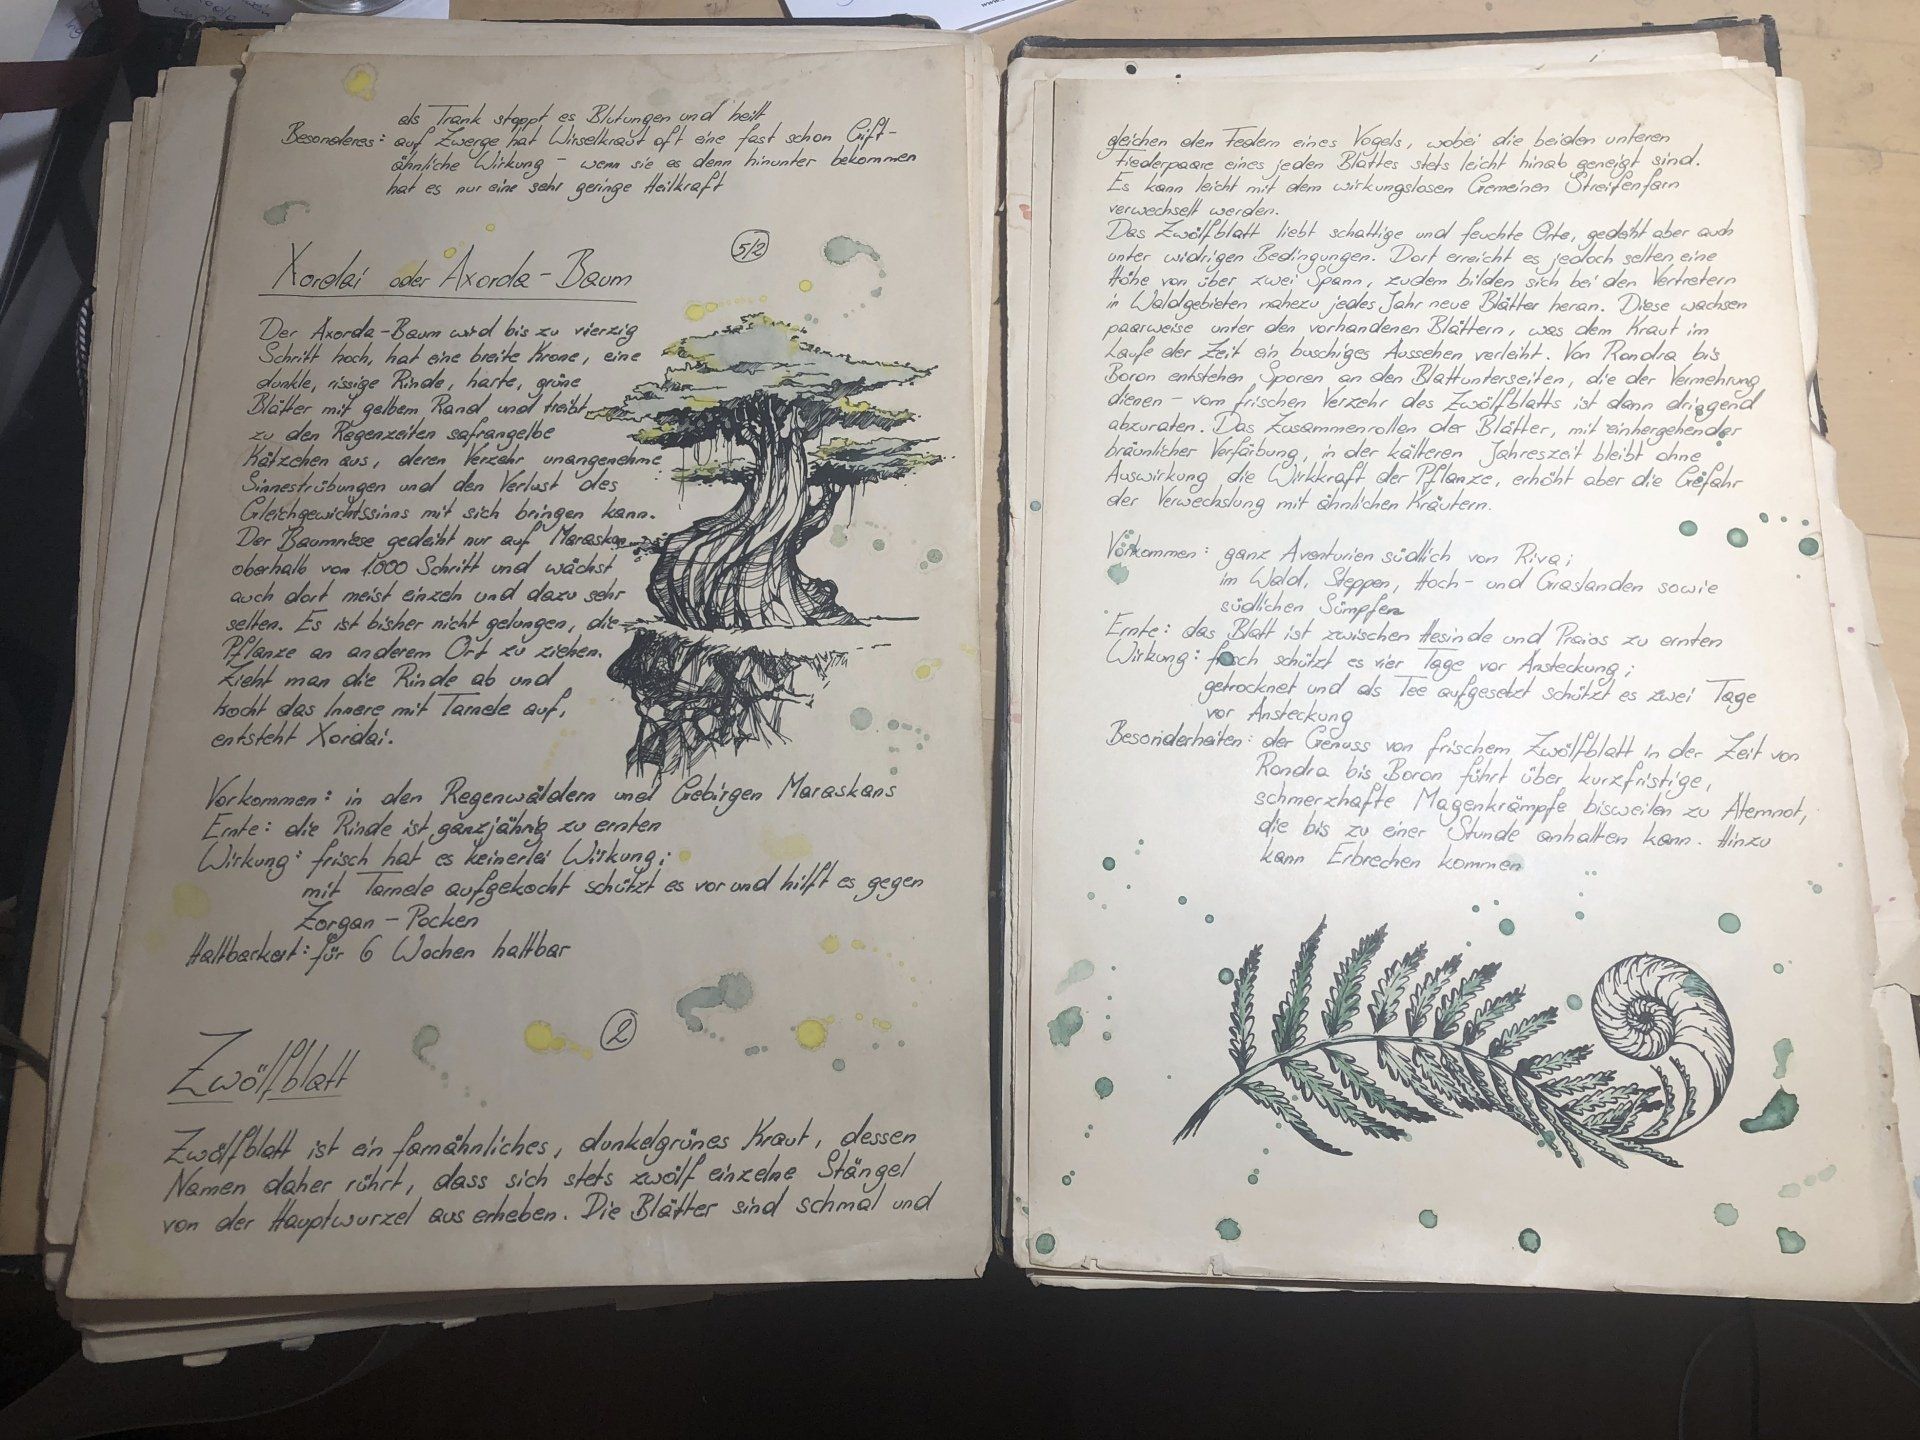 als Trank stoppt es Blutungen und heilt
Besonderes: auf Zwerge hat Wirselkraut oft eine fast schon Gift-
ähnliche Wirkung – wenn sie es denn hinunter bekommen
hat es nur eine sehr geringe Heilkraft
5/2
Xordai oder Axorda-Baum
Der Axorda-Baum wird bis zu vierzig
Schritt hoch, hat eine breite Krone, eine
dunkle, rissige Rinde, harte, grüne
Blätter mit gelbem Rand und treibt
zu den Regenzeiten safrangelbe
Kätzchen aus, deren Verzehr unangenehme
Sinnestrübungen und den Verlust des
Gleichgewichtssinns mit sich bringen kann.
Der Baumriese gedeiht nur auf Maraskan
oberhalb von 1.000 Schritt und wächst
auch dort meist einzeln und dazu sehr
selten. Es ist bisher nicht gelungen, die
Pflanze an anderem Ort zu ziehen.
Zieht man die Rinde ab und
kocht das Innere mit Tarnele auf,
entsteht Xordai.
Vorkommen: in den Regenwäldern und Gebirgen Maraskans
Ernte: die Rinde ist ganzjährig zu ernten
Wirkung: frisch hat es keinerlei Wirkung;
mit Tarnele aufgekocht schützt es vor und hilft es gegen
Zorgan-Pocken
Haltbarkeit: für 6 Wochen haltbar
2
Zwölfblatt
Zwölfblatt ist ein farnähnliches, dunkelgrünes Kraut, dessen
Namen daher rührt, dass sich stets zwölf einzelne Stängel
von der Hauptwurzel aus erheben. Die Blätter sind schmal und
gleichen den Federn eines Vogels, wobei die beiden unteren
Fiederpaare eines jeden Blattes stets leicht hinab geneigt sind.
Es kann leicht mit dem wirkungslosen Gemeinen Streifenfarn
verwechselt werden.
Das Zwölfblatt liebt schattige und feuchte Orte, gedeiht aber auch
unter widrigen Bedingungen. Dort erreicht es jedoch selten eine
Höhe von über zwei Spann, zudem bilden sich bei den Vertretern
in Waldgebieten nahezu jedes Jahr neue Blätter heran. Diese wachsen
paarweise unter den vorhandenen Blättern, was dem Kraut im
Laufe der Zeit ein buschiges Aussehen verleiht. Von Rondra bis
Boron entstehen Sporen an den Blattunterseiten, die der Vermehrung
dienen – vom frischen Verzehr des Zwölfblatts ist dann dringend
abzuraten. Das Zusammenrollen der Blätter, mit einhergehender
bräunlicher Verfärbung, in der kälteren Jahreszeit bleibt ohne
Auswirkung die Wirkkraft der Pflanze, erhöht aber die Gefahr
der Verwechslung mit ähnlichen Kräutern.
Vorkommen: ganz Aventurien südlich von Riva;
im Wald, Steppen, Hoch- und Graslanden sowie
südlichen Sümpfen
Ernte: das Blatt ist zwischen Hesinde und Praios zu ernten
Wirkung: frisch schützt es vier Tage vor Ansteckung;
getrocknet und als Tee aufgesetzt schützt es zwei Tage
vor Ansteckung
Besonderheiten: der Genuss von frischem Zwölfblatt in der Zeit von
Rondra bis Boron führt über kurzfristige,
schmerzhafte Magenkrämpfe bisweilen zu Atemnot,
die bis zu einer Stunde anhalten kann. Hinzu
kann Erbrechen kommen